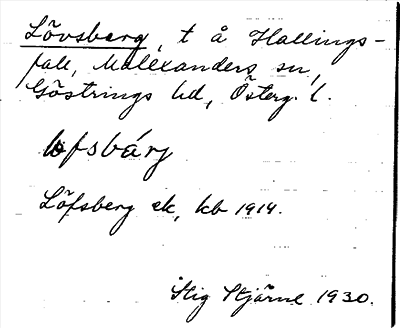 Lövsberg, t å Hallings-
fall, Malexanders sn,
Göstrings hd, Österg. l.
lofsbárj
Löfsberg ek, kb 1914.
Stig Stjärne 1930.